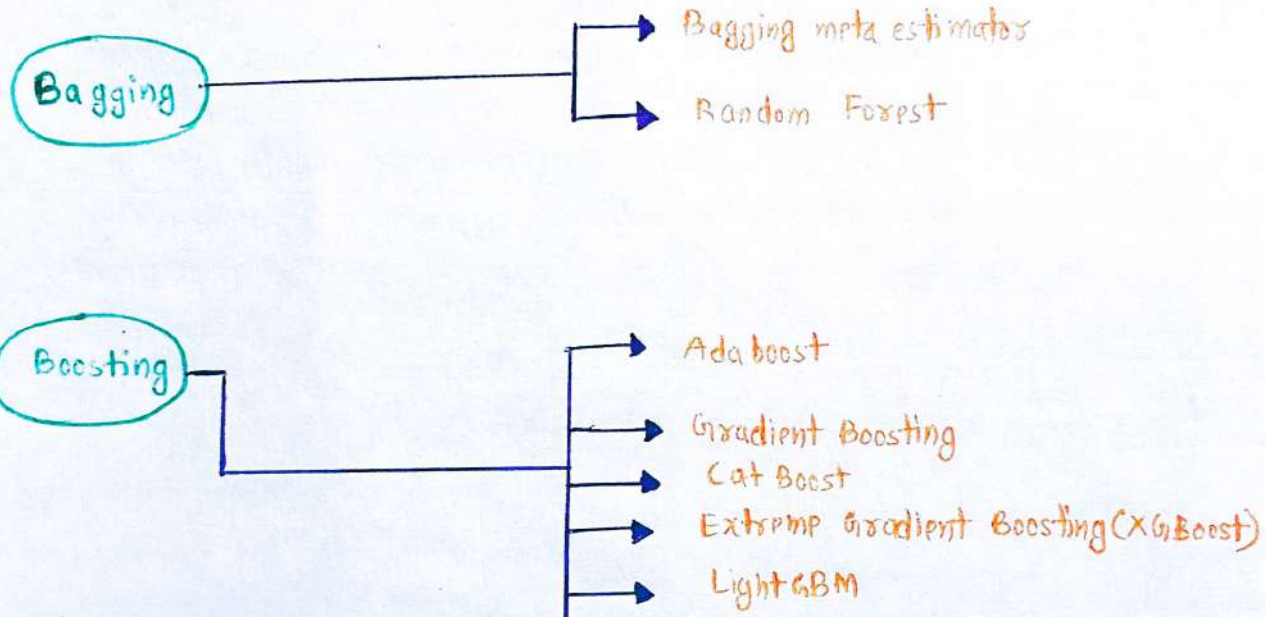 Bagging
Bagging meta estimator
Random Forest
Boosting
Adaboost
Gradient Boosting
Cat Boost
Extreme Gradient Boosting (XGBoost)
LightGBM